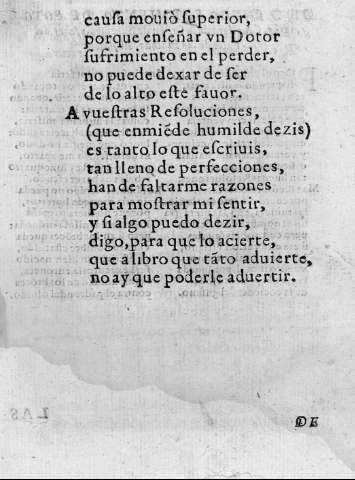 cauſa mouio ſuperior,
porque enſeñar vn Dotor
ſufrimiento en el perder,
no puede dexar de ſer
de lo alto eſte fauor.
A vueſtras Reſoluciones,
(que enmiẽde humilde dezis)
es tanto lo que eſcriuis,
tan lleno de perfecciones,
han de faltarme razones
para moſtrar mi ſentir,
y ſi algo puedo dezir,
digo, para que lo acierte,
que a libro que tãto aduierte,
no ay que poderle aduertir.
DE